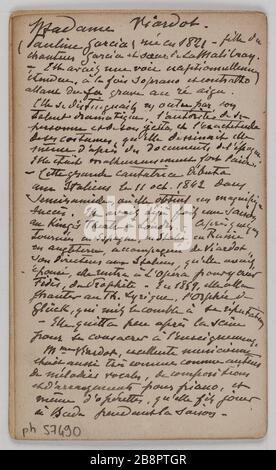 Madame Viardot.
(Pauline Garcia) née en 1821 - fille du
chanteur Garcia et sœur de la Malibran.
- Elle avait une voix exceptionnellement
étendue, à la fois soprano et contralto
allant du fa grave au ré aigu.
Elle se distinguait en outre par son
talent dramatique, l'autorité de sa
personne et l'exactitude
de ses costumes, qu'elle dessinait elle-
même d'après des documents de l'époque.
Elle était malheureusement fort laide.
- Cette grande cantatrice débuta
aux Italiens le 11 oct. 1842 dans
Semiramide où elle obtint un magnifique
succès.
au King's Theatre London
tournées en Espagne, en Russie
en Angleterre, accompagnée de Viardot
son directeur aux Italiens, qu'elle avait
épousé, elle entra à l'Opéra pour y créer
Fidès, du Prophète - En 1859, elle alla
chanter au Th. Lyrique, l'Orphée de
Glück, qui mit le comble à sa réputation
- Elle quitta peu après la scène
pour se consacrer à l'enseignement.
Mme Viardot, excellente musicienne,
était aussi très connue comme auteur
de mélodies vocales, de compositions
et d'arrangements pour piano, et
même d'opérettes, qu'elle fit jouer
à Bade pendant la saison -
ph 57690
alamy
Image ID: 2B8PTGR
www.alamy.com